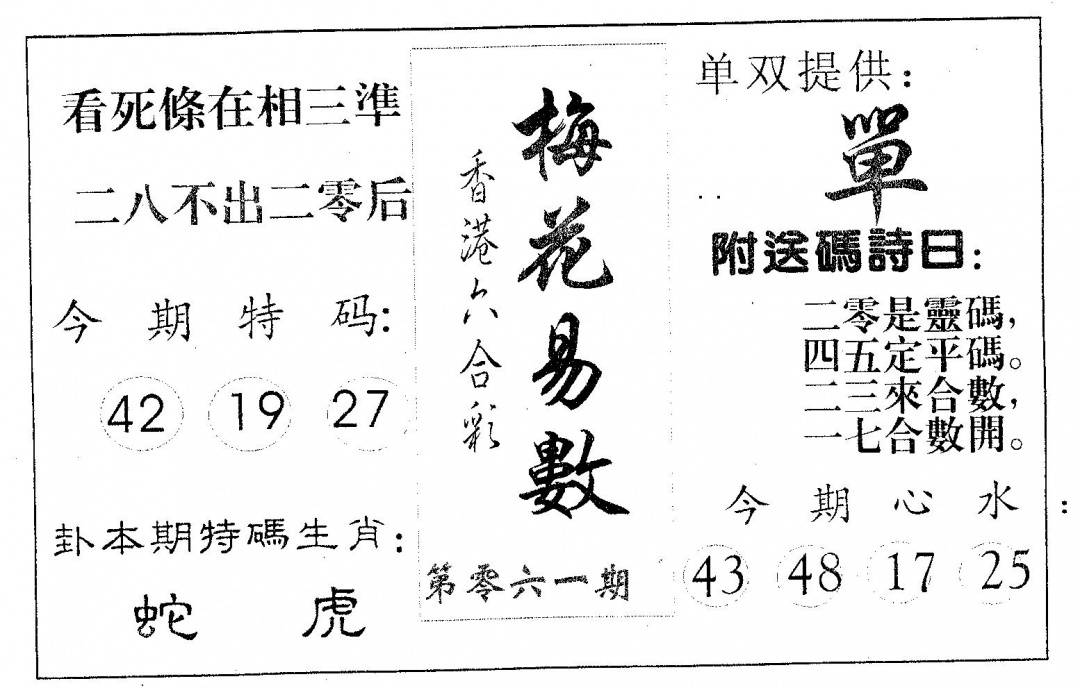 看死條在相三準
二八不出二零后
今期特码:
42 19 27
卦本期特碼生肖:
蛇 虎
梅花易數
香港六合彩
第零六一期
单双提供:
單
附送碼詩曰:
二零是靈碼,
四五定平碼。
二三來合數,
一七合數開。
今期心水:
43 48 17 25